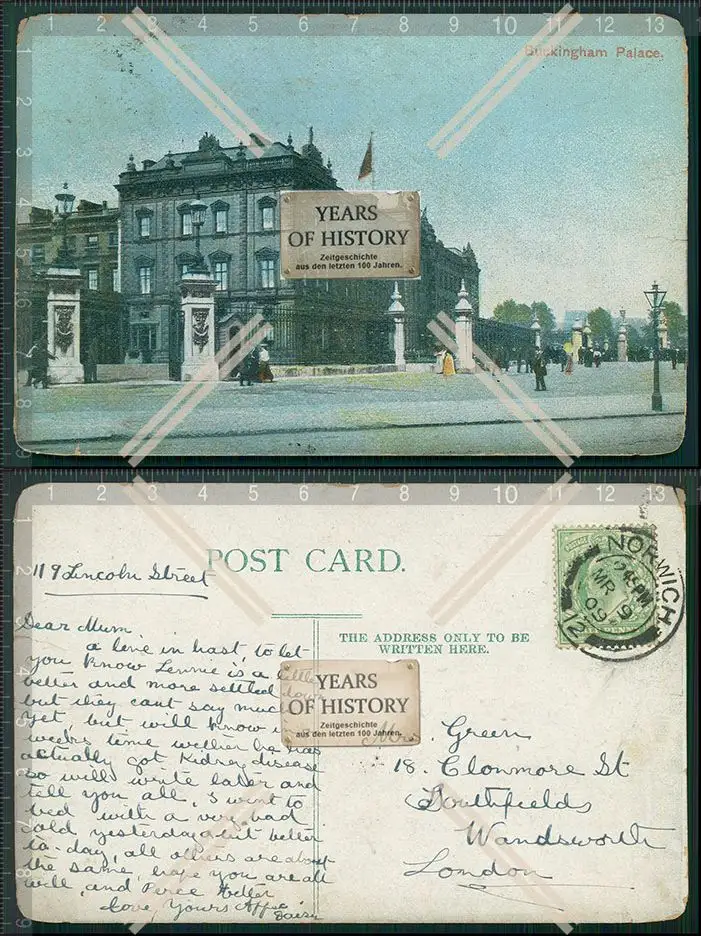 1 2 3 4 5 6 7 8 9 10 11 12 13
Buckingham Palace.
YEARS
OF HISTORY
Zeitgeschichte
aus den letzten 100 Jahren.
1 2 3 4 5 6 7 8 9 10 11 12 13
POST CARD.
119 Lincoln Street
Dear Mum.
a line in hast, to let
you know Lennie is a little
better and more settled down
but they cant say much
yet, but will know in
weeks time wether he has
actually got Kidney disease
so will write later and
tell you all, I went to
bed with a very bad
cold yesterday a bit better
to-day, all others are about
the same, hope you are all
well, and Perce better
love, Yours Affec
Daisy
THE ADDRESS ONLY TO BE
WRITTEN HERE.
YEARS
OF HISTORY
Zeitgeschichte
aus den letzten 100 Jahren.
Mrs. Green
18. Clonmore St
Southfields
Wandsworth
London
NORWICH
2 45 PM
MR 9
09
12